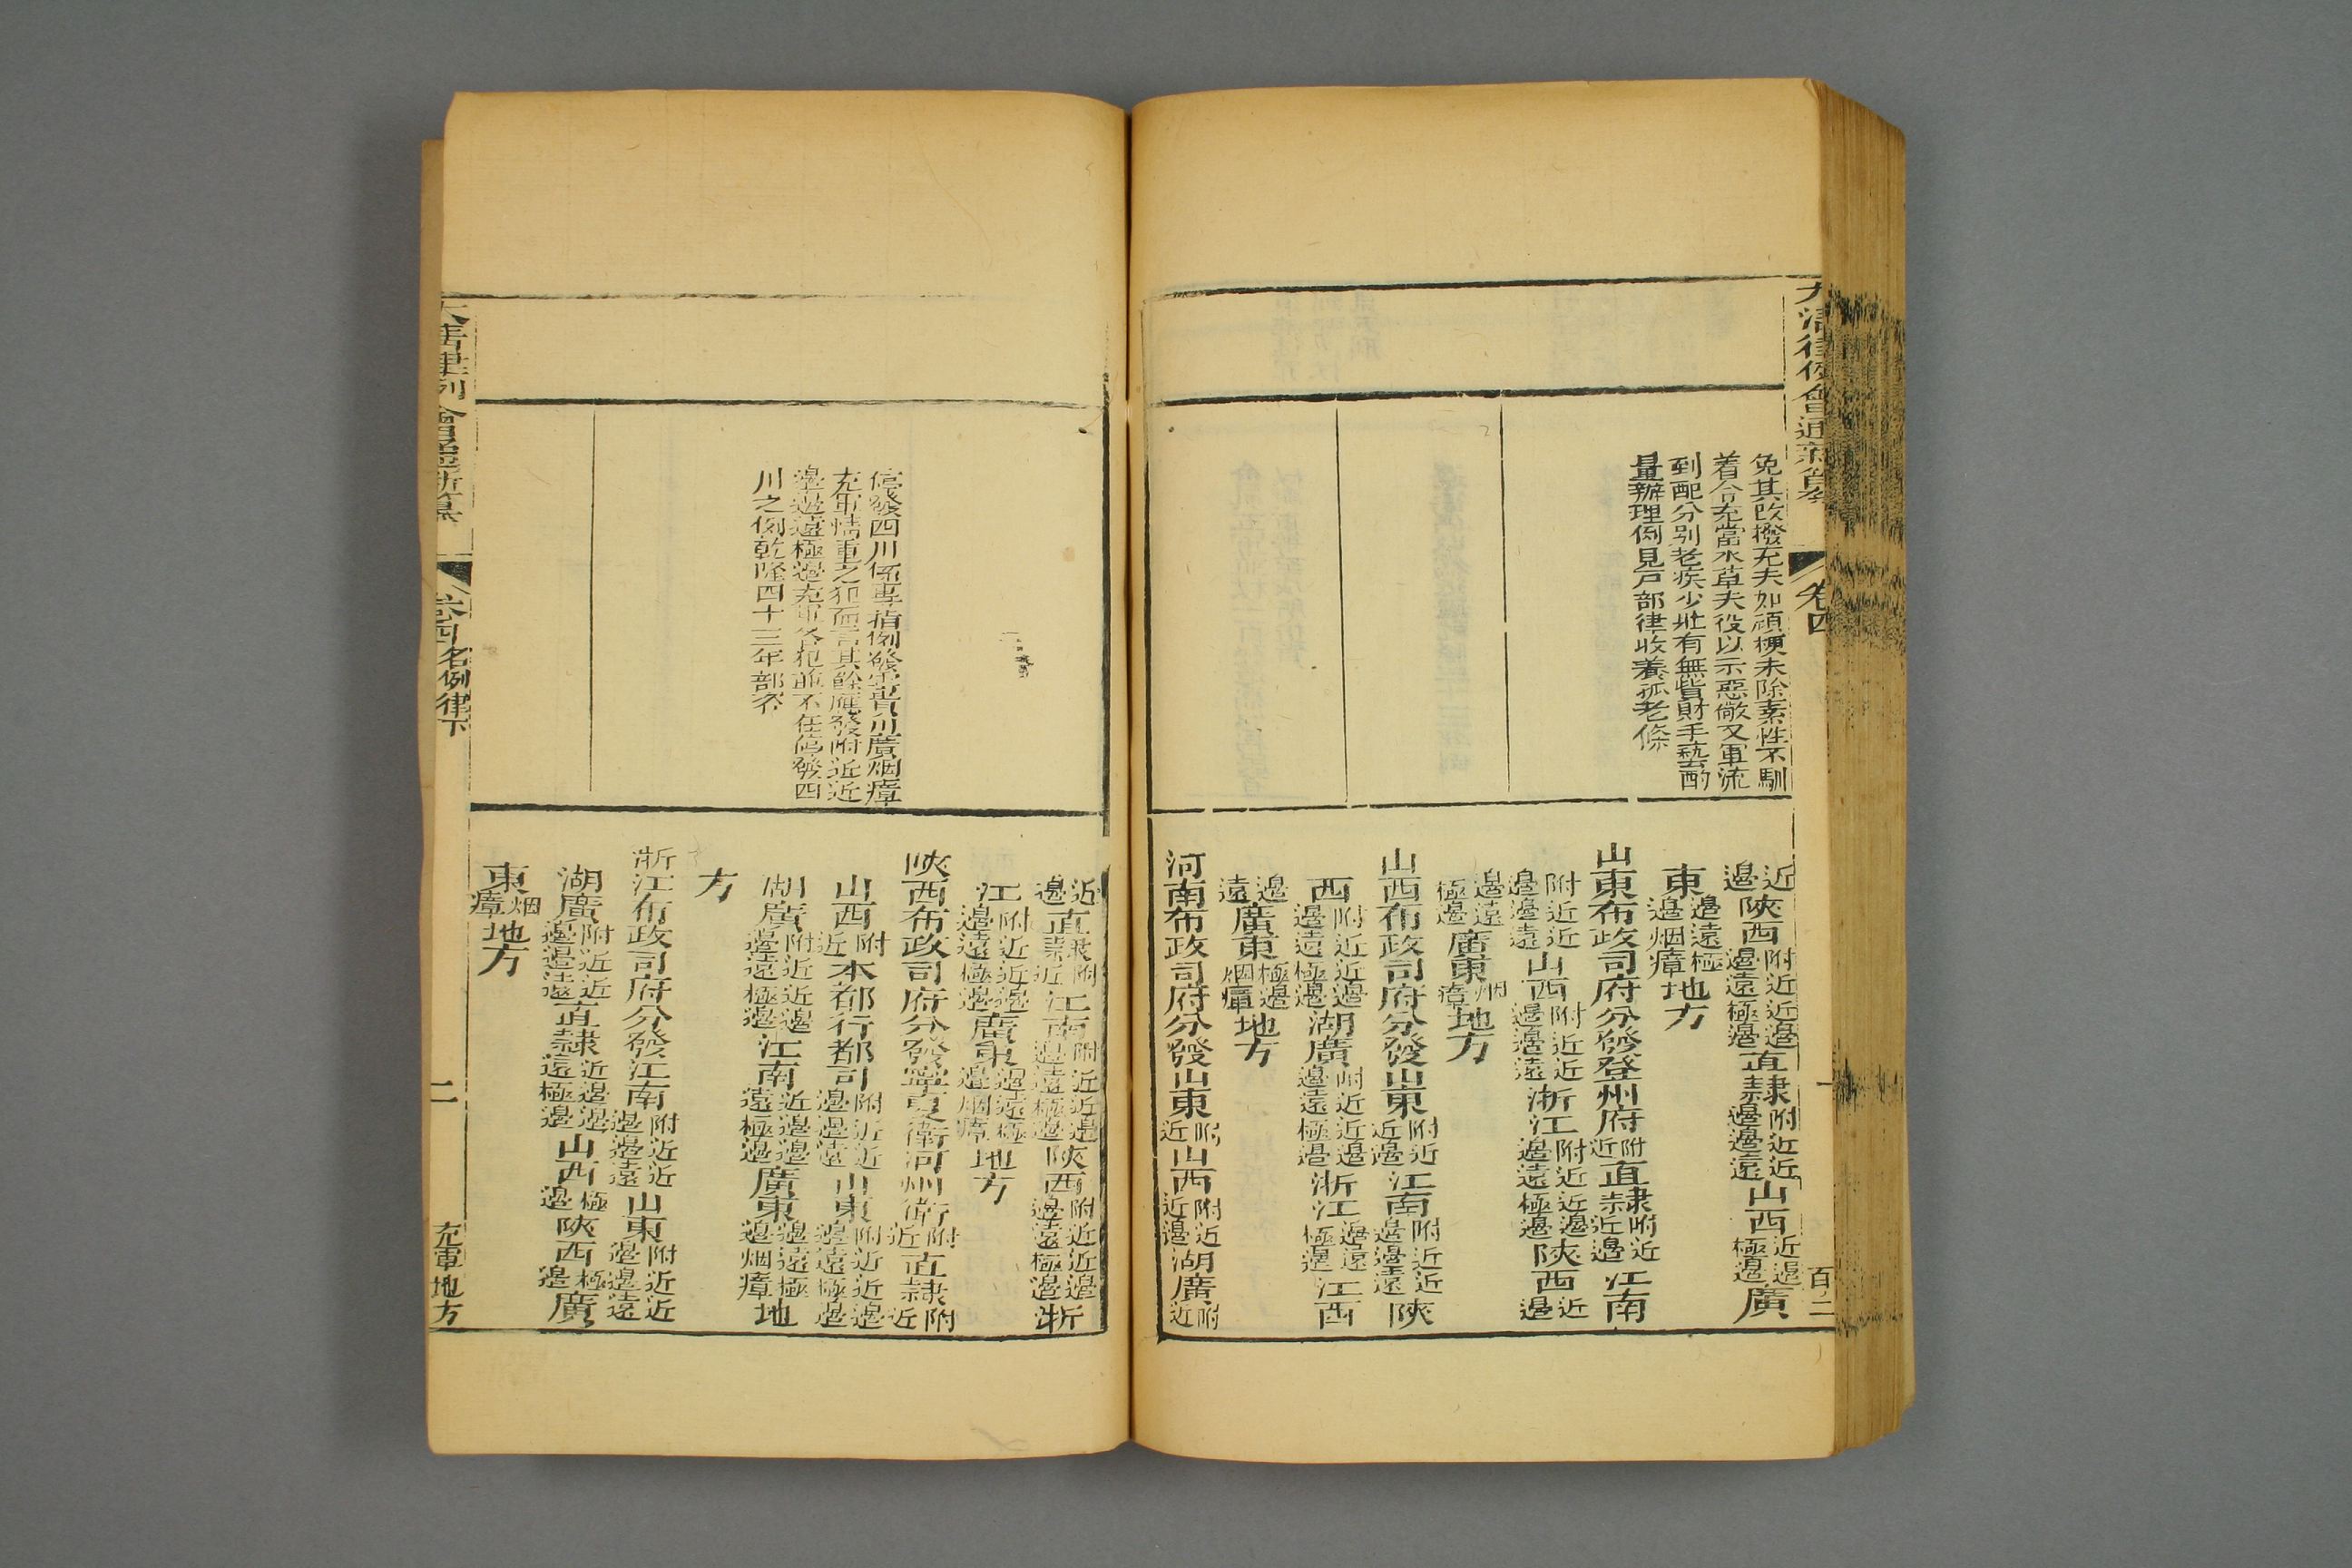 大清律例會通新纂
卷四
免其改撥充夫如頑梗未除素性不馴
着合充當水草夫役以示惡儆又軍流
到配分别老疾少壯有無貲財手藝酌
量辦理例見戸部律收養孤老條
近邊陝西附近近邊邊遠極邊直隸附近近邊邊遠山西近邊極邊廣
東邊遠極邊烟瘴地方
山東布政司府分發登州府附近直隸附近近邊江南
附近近邊邊遠山西附近近邊邊遠浙江附近近邊邊遠極邊陝西近邊
邊遠極邊廣東烟瘴地方
山西布政司府分發山東附近近邊江南附近近邊邊遠陝
西附近近邊邊遠極邊湖廣附近近邊邊遠極邊浙江邊遠極邊江西
邊遠廣東極邊烟瘴地方
河南布政司府分發山東附近山西附近近邊湖廣附近
近邊直隸附近江南附近近邊邊遠極邊陝西附近近邊邊遠極邊浙
江附近近邊邊遠極邊廣東邊遠極邊烟瘴地方
陝西布政司府分發寧夏衛河州衛附近直隸附近
山西附近本都行都司附近近邊邊遠山東附近近邊邊遠極邊
湖廣附近近邊邊遠極邊江南近邊邊遠極邊廣東邊遠極邊烟瘴地
方
浙江布政司府分發江南附近近邊邊遠山東附近近邊邊遠
湖廣附近近邊邊遠直隸近邊邊遠極邊山西極邊陝西極邊廣
東烟瘴地方
停發四川係專指例發雲貴川廣烟瘴
充軍情重之犯而言其餘應發附近近
邊邊遠極邊充軍各犯並不在停發四
川之例乾隆四十三年部咨
大清律例會通新纂
卷四名例律下
二
充軍地方